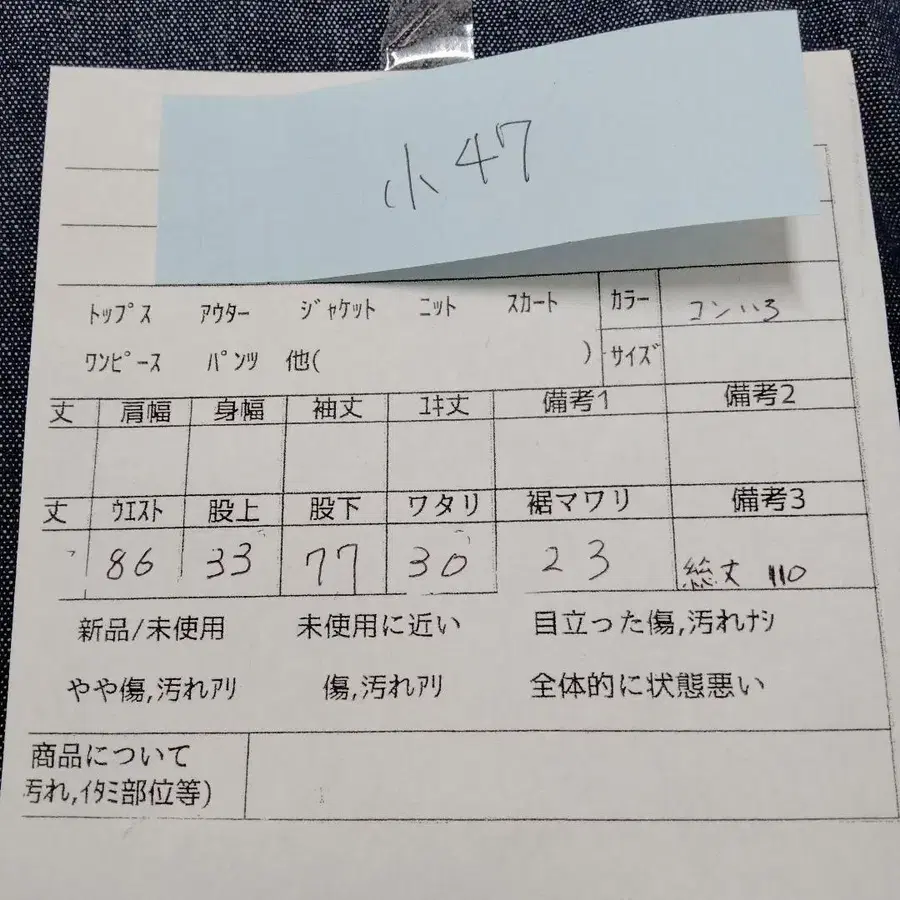 小47
ﾄｯﾌﾟｽ ｱｳﾀｰ ｼﾞｬｹｯﾄ ﾆｯﾄ ｽｶｰﾄ ｶﾗｰ コンいろ
ﾜﾝﾋﾟｰｽ ﾊﾟﾝﾂ 他( ) ｻｲｽﾞ
丈 肩幅 身幅 袖丈 ﾕｷ丈 備考1 備考2
丈 ｳｴｽﾄ 股上 股下 ワタリ 裾マワリ 備考3
86 33 77 30 23 総丈 110
新品/未使用 未使用に近い 目立った傷,汚れﾅｼ
やや傷,汚れｱﾘ 傷,汚れｱﾘ 全体的に状態悪い
商品について
汚れ,ｲﾀﾐ部位等)